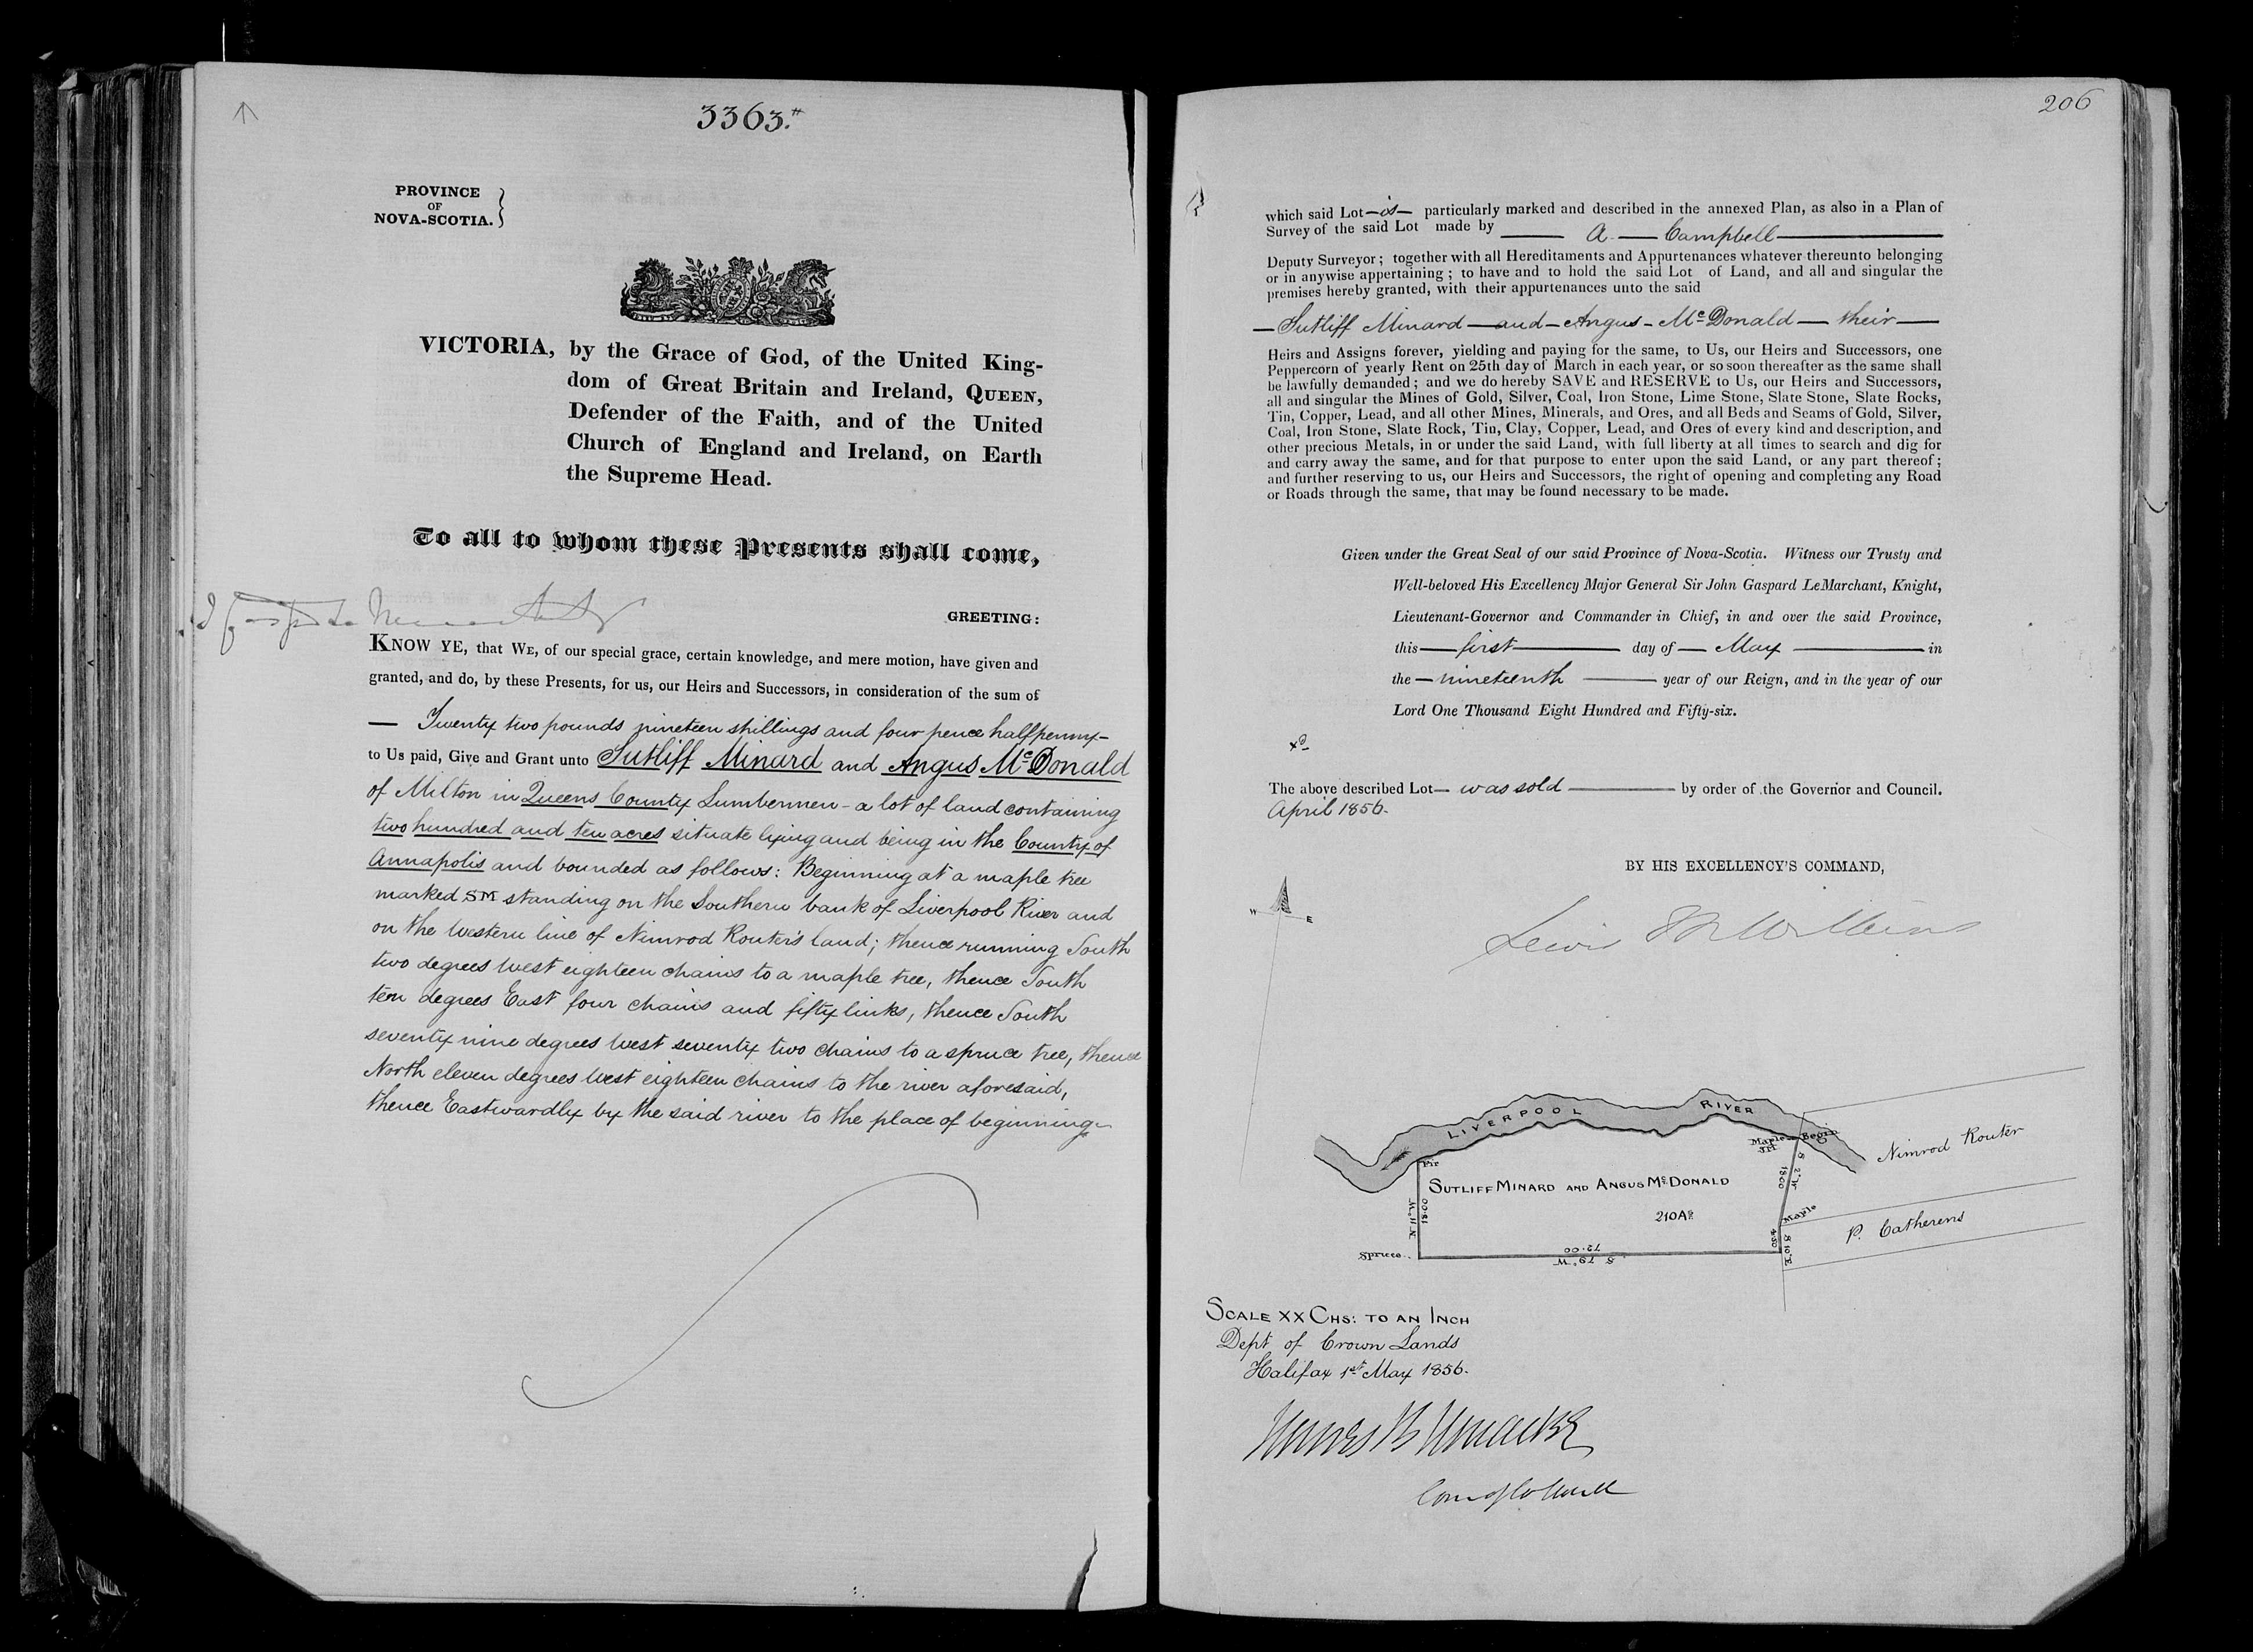 3363.
PROVINCE
OF
NOVA-SCOTIA.
VICTORIA, by the Grace of God, of the United King-
dom of Great Britain and Ireland, QUEEN,
Defender of the Faith, and of the United
Church of England and Ireland, on Earth
the Supreme Head.
To all to whom these Presents shall come,
GREETING:
KNOW YE, that WE, of our special grace, certain knowledge, and mere motion, have given and
granted, and do, by these Presents, for us, our Heirs and Successors, in consideration of the sum of
— Twenty two pounds nineteen shillings and four pence halfpenny —
to Us paid, Give and Grant unto Sutliff Minard and Angus McDonald
of Milton in Queens County Lumbermen - a lot of land containing
two hundred and ten acres situate lying and being in the County of
Annapolis and bounded as follows: Beginning at a maple tree
marked SM standing on the Southern bank of Liverpool River and
on the Western line of Nimrod Router's land; thence running South
two degrees West eighteen chains to a maple tree, thence South
ten degrees East four chains and fifty links, thence South
seventy nine degrees West seventy two chains to a spruce tree, thence
North eleven degrees West eighteen chains to the river aforesaid,
thence Eastwardly by the said river to the place of beginning
206
which said Lot — is — particularly marked and described in the annexed Plan, as also in a Plan of
Survey of the said Lot made by —— A —— Campbell ——
Deputy Surveyor; together with all Hereditaments and Appurtenances whatever thereunto belonging
or in anywise appertaining; to have and to hold the said Lot of Land, and all and singular the
premises hereby granted, with their appurtenances unto the said
— Sutliff Minard — and — Angus — McDonald — their —
Heirs and Assigns forever, yielding and paying for the same, to Us, our Heirs and Successors, one
Peppercorn of yearly Rent on 25th day of March in each year, or so soon thereafter as the same shall
be lawfully demanded; and we do hereby SAVE and RESERVE to Us, our Heirs and Successors,
all and singular the Mines of Gold, Silver, Coal, Iron Stone, Lime Stone, Slate Stone, Slate Rocks,
Tin, Copper, Lead, and all other Mines, Minerals, and Ores, and all Beds and Seams of Gold, Silver,
Coal, Iron Stone, Slate Rock, Tin, Clay, Copper, Lead, and Ores of every kind and description, and
other precious Metals, in or under the said Land, with full liberty at all times to search and dig for
and carry away the same, and for that purpose to enter upon the said Land, or any part thereof;
and further reserving to us, our Heirs and Successors, the right of opening and completing any Road
or Roads through the same, that may be found necessary to be made.
Given under the Great Seal of our said Province of Nova-Scotia. Witness our Trusty and
Well-beloved His Excellency Major General Sir John Gaspard LeMarchant, Knight,
Lieutenant-Governor and Commander in Chief, in and over the said Province,
this — first — day of — May — in
the — nineteenth — year of our Reign, and in the year of our
Lord One Thousand Eight Hundred and Fifty-six.
The above described Lot — was sold — by order of the Governor and Council.
April 1856.
BY HIS EXCELLENCY'S COMMAND,
Lewis M Wilkins
W E
LIVERPOOL RIVER
Maple Begin
Nimrod Router
Fir
SUTLIFF MINARD AND ANGUS McDONALD
210 Acs
S 2° W
18.00
N 11° W
18.00
Maple
P. Catherens
4.50
S 10° E
Spruce
72.00
S 79° W
SCALE XX CHS: TO AN INCH
Dept of Crown Lands
Halifax 1st May 1856.